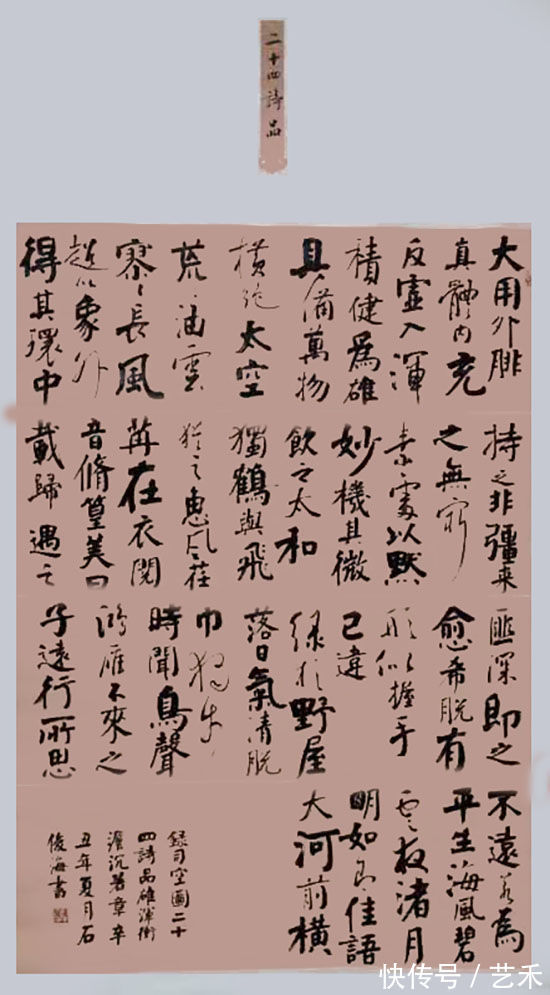 二十四詩品
大用外腓
真體内充
反虛入渾
積健爲雄
具備萬物
橫絶太空
荒〻油雲
寥〻長風
超以象外
得其環中
持之非彊来
之無窮
素處以默
妙機其微
飲之太和
獨鶴與飛
猶之惠風荏
苒在衣閱
音脩篁美曰
載歸遇之
匪深即之
愈希脱有
形似握手
已違
緑杉野屋
落日氣清脱
巾獨步
時聞鳥聲
鴻雁不來之
子遠行所思
不遠若為
平生海風碧
雲夜渚月
明如有佳語
大河前橫
録司空圖二十
四詩品雄渾衝
澹沉著章辛
丑年夏月石
俊海書
快传号/艺禾